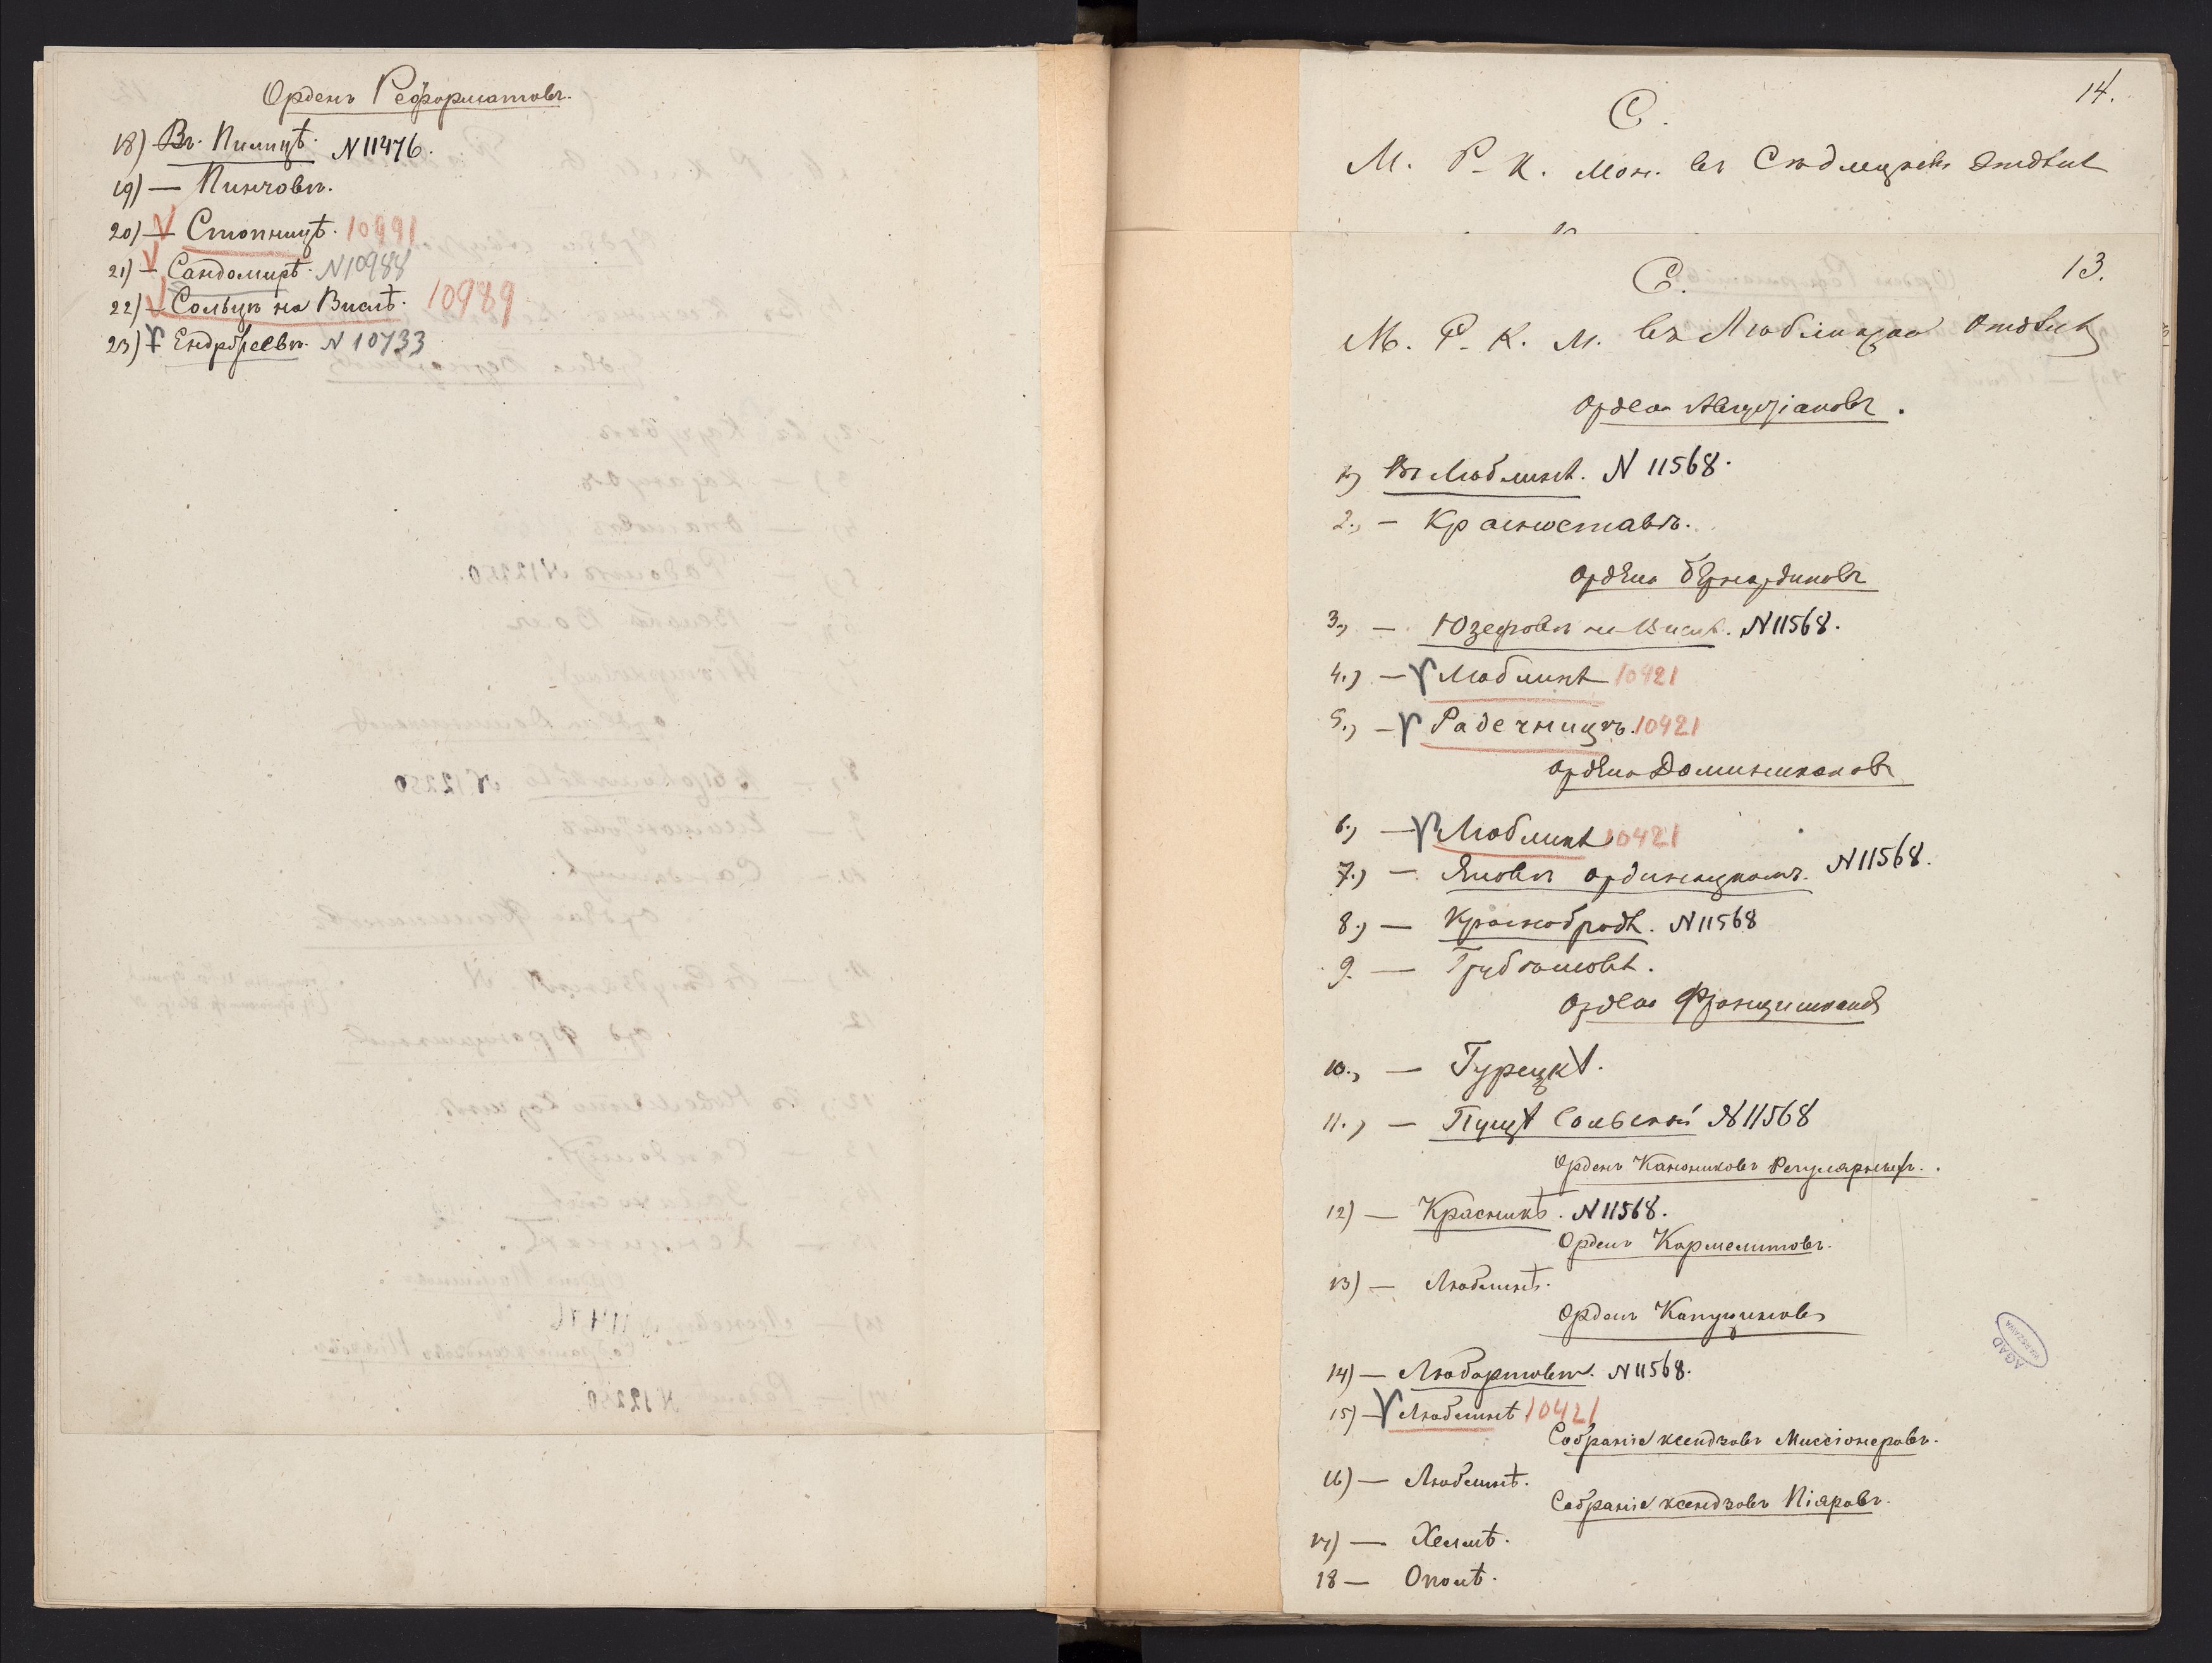 Орденъ Реформатовъ.
18) Въ Пилицѣ. N 11476.
19) — Пинчовѣ.
20) V — Стопницѣ. 10991
21) V — Сандомирѣ. N 10988
22) V — Сольцѣ на Вислѣ. 10989
23) Ендржеевѣ. N 10733
14.
С.
М. Р. К. Мон. въ Сѣдлецкомъ Отдѣлѣ
13.
С.
М. Р. К. М. въ Люблинскомъ Отдѣлѣ
Ордена Августіановъ.
1) Въ Люблинѣ. N 11568.
2., — Красноставѣ.
Ордена Бернардиновъ
3., — Юзефовѣ на Вислѣ. N 11568.
4.) — V Люблинѣ 10421
5., — V Радечницѣ. 10421
Ордена Доминикановъ
6.) — V Люблинѣ 10421
7.) — Яновѣ Ординацкомъ. N 11568.
8.) — Краснобродѣ. N 11568
9. — Грубешовѣ.
Ордена Францишкановъ
10., — Гурецкѣ.
11.) — Пущѣ Сольской N 11568
Орденъ Канониковъ Регулярныхъ.
12) — Красникѣ. N 11568.
Орденъ Кармелитовъ.
13) — Люблинѣ.
Орденъ Капуциновъ
14) — Любартовѣ. N 11568.
15) — V Люблинѣ 10421
Собраніе ксендзовъ Миссіонеровъ.
16) — Люблинѣ.
Собраніе ксендзовъ Піяровъ.
17) — Хелмѣ.
18 — Ополѣ.
AGAD
WARSZAWA